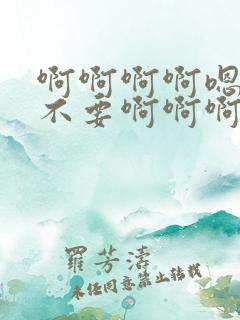 啊啊啊啊嗯
不要啊啊啊
羅芳濤
未经同意禁止转载